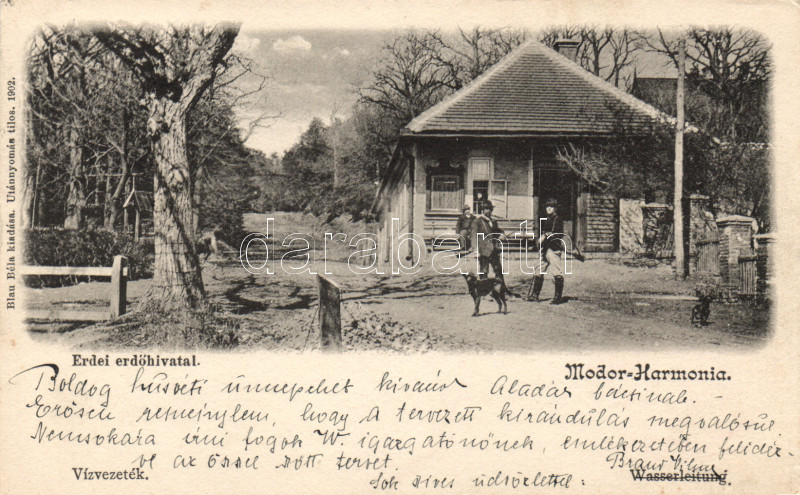 Blau Béla kiadása. Utánnyomás tilos. 1902.
darabanth
Erdei erdőhivatal.
Modor-Harmonia.
Boldog húsvéti ünnepeket kivánok Aladár bácsinak.
Erősen reménylem, hogy a tervezett kirándulás megvalósul
Nemsokára írni fogok W. igazgatónőnek, emlékezetében
az őssel tervet.
Sok szives üdvözlettel:
Braun Vilma
Vízvezeték.
Wasserleitung.